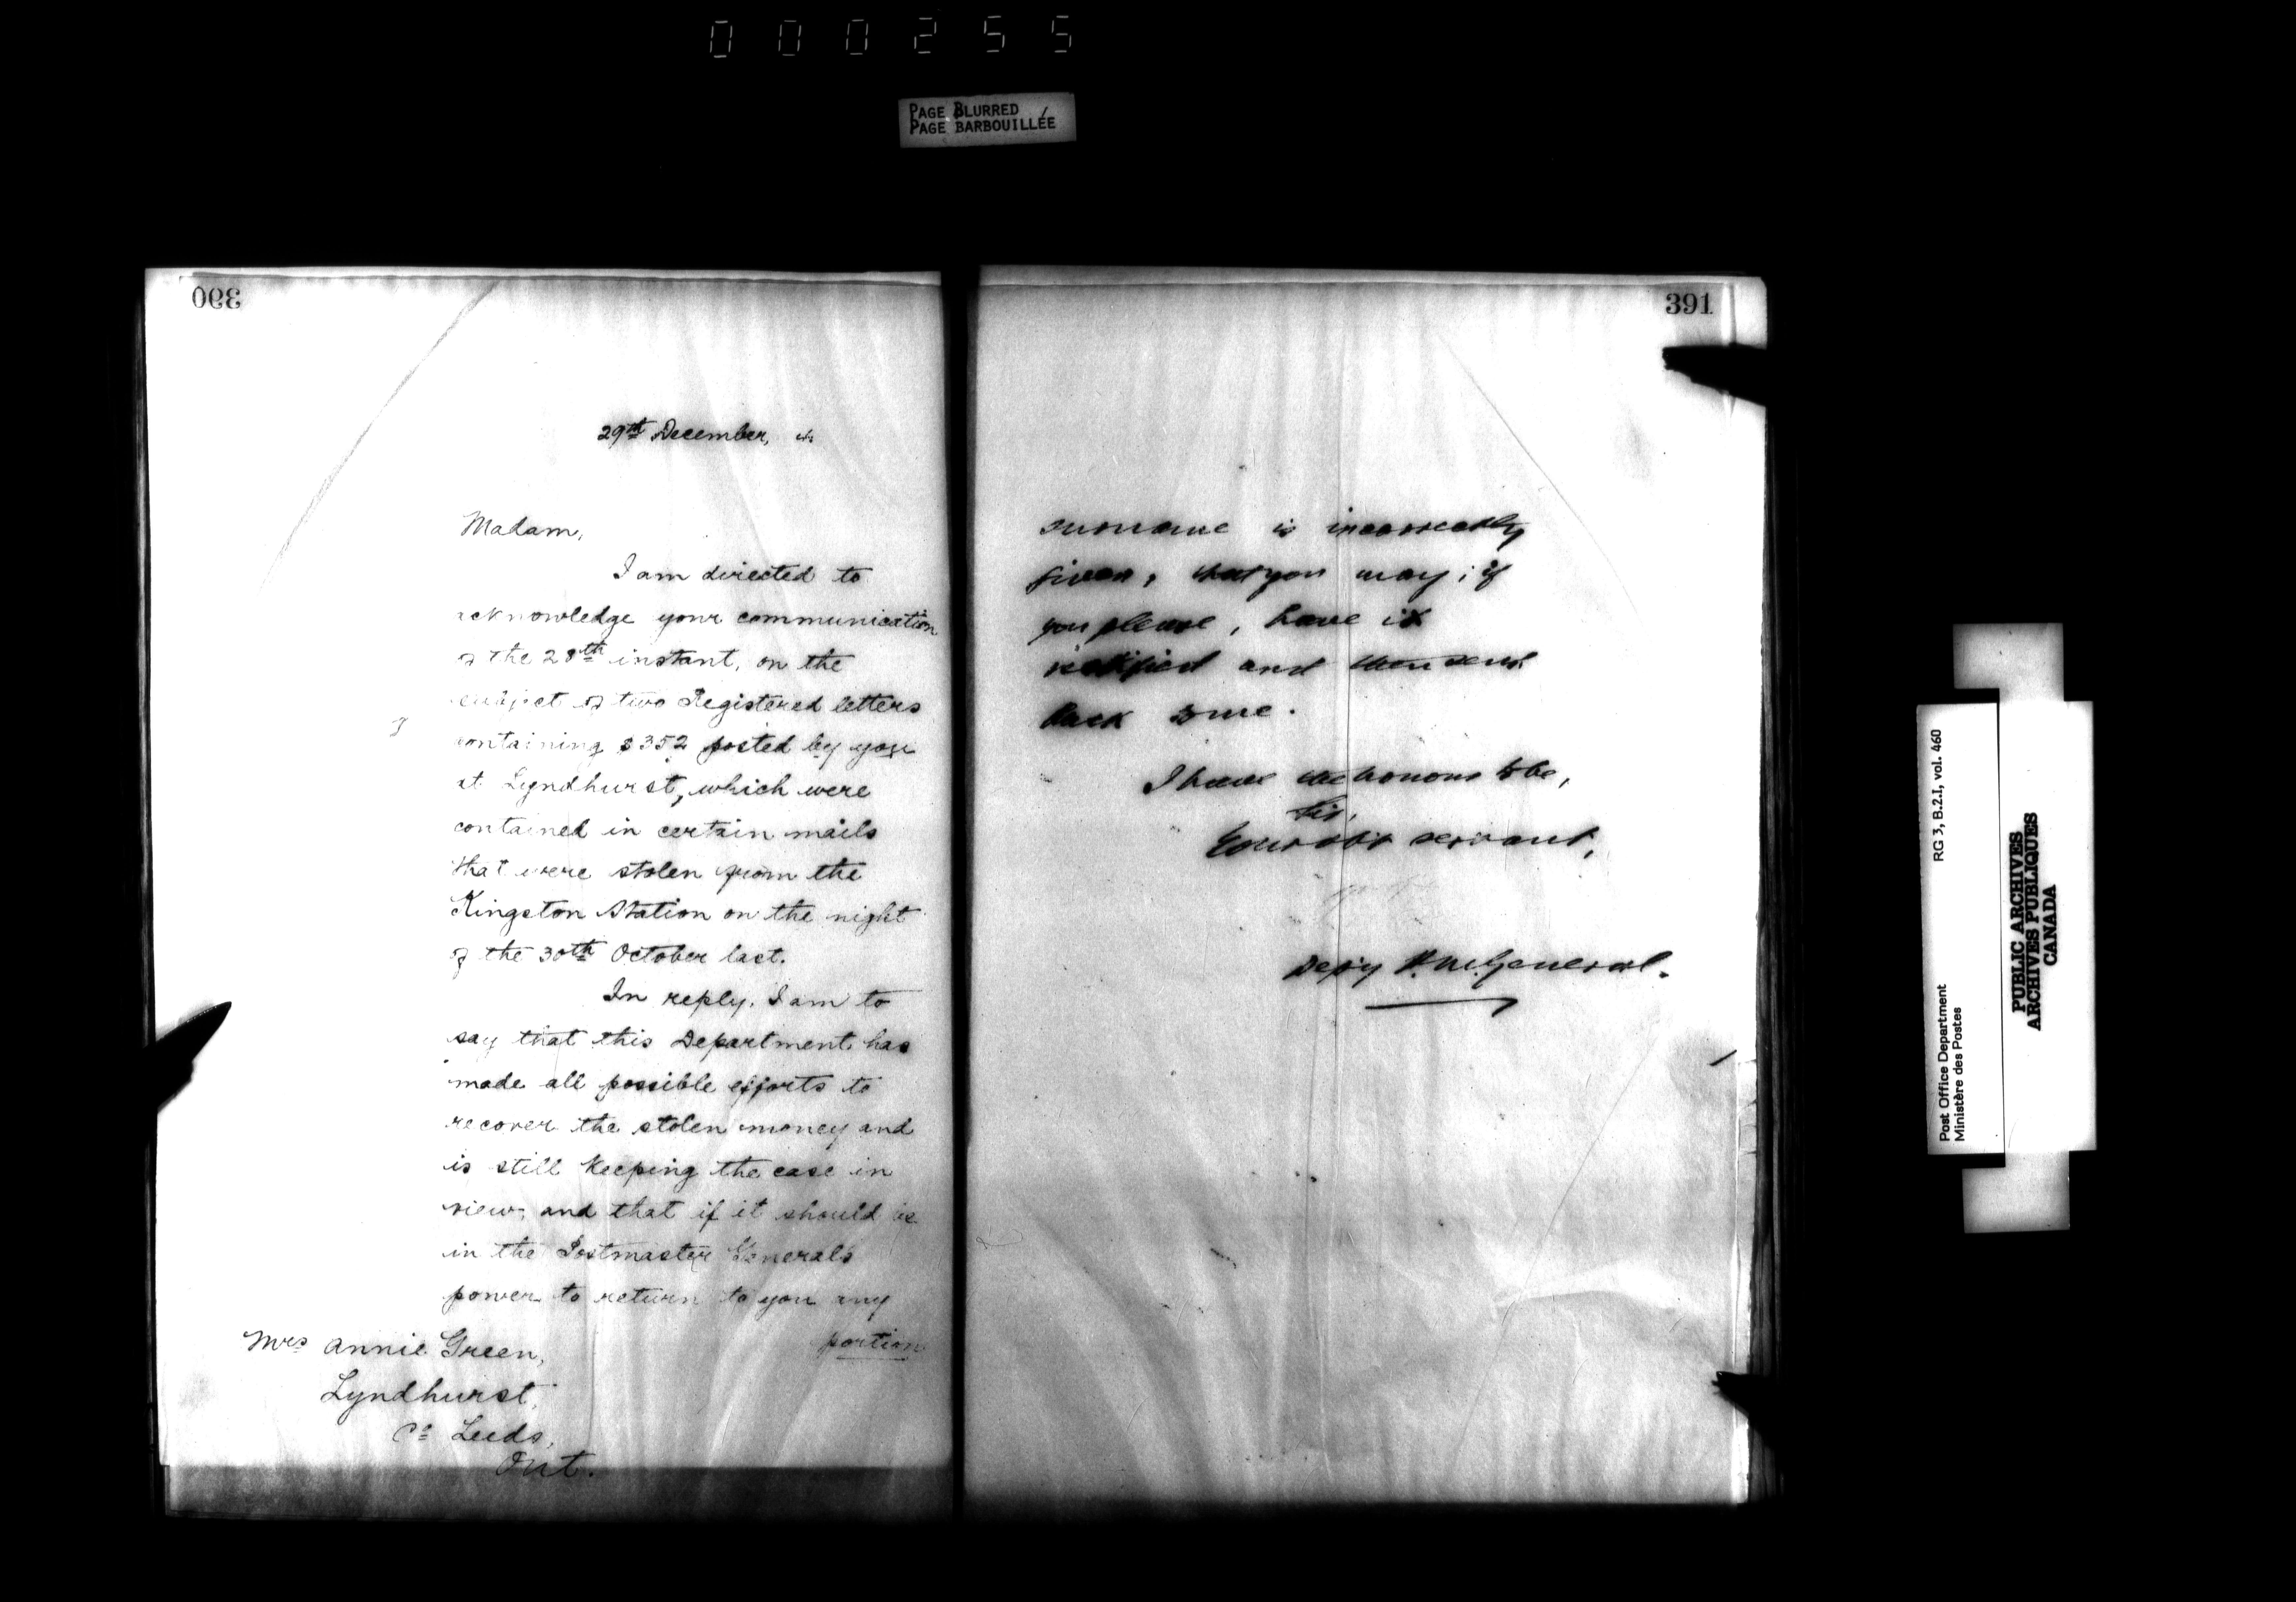 000255
PAGE BLURRED
PAGE BARBOUILLÉE
390
29th December,
Madam,
I am directed to
acknowledge your communication
of the 28th instant, on the
subject of two Registered letters
containing $352 posted by you
at Lyndhurst, which were
contained in certain mails
that were stolen from the
Kingston Station on the night
of the 30th October last.
In reply, I am to
say that this Department has
made all possible efforts to
recover the stolen money and
is still keeping the case in
view, and that if it should be
in the Postmaster Generals
power to return to you any
portion
Mrs Annie Green,
Lyndhurst,
Co Leeds,
Ont.
391
surname is incorrectly
given, that you may, if
you please, have it
rectified and then sent
back to me.
I have the honour to be,
Sir,
Your obt servant,
Depy P.M. General.
Post Office Department
Ministère des Postes
RG 3, B.2.I, vol. 460
PUBLIC ARCHIVES
ARCHIVES PUBLIQUES
CANADA